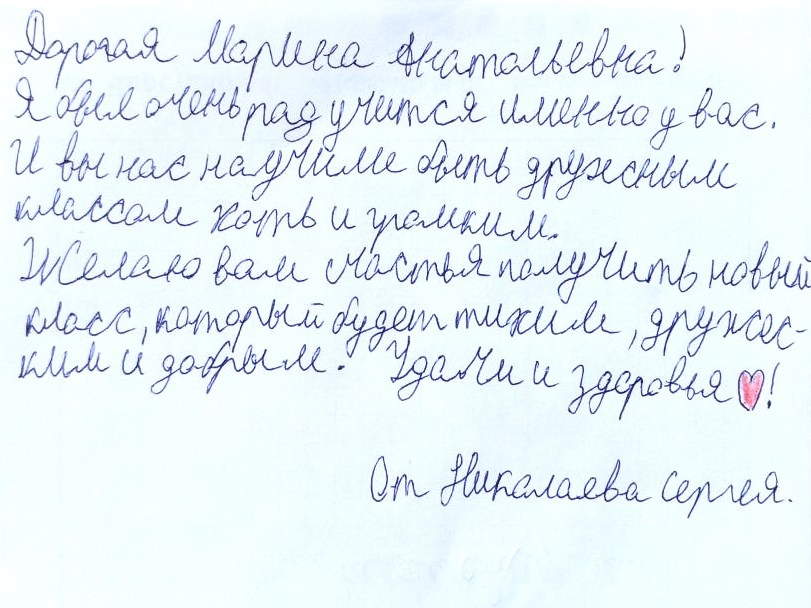 Дорогая Марина Анатольевна!
Я был очень рад учится именно у вас.
И вы нас научили быть дружным
классом хоть и громким.
Желаю вам счастья получить новый
класс, который будет тихим, дружес-
ким и добрым. Удачи и здоровья ♥!
От Николаева Сергея.